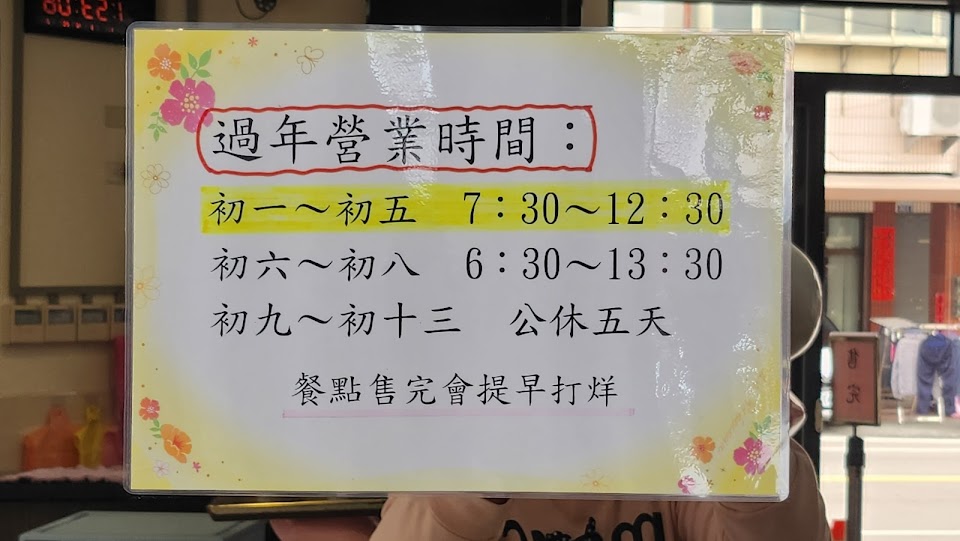 過年營業時間：
初一～初五 7：30～12：30
初六～初八 6：30～13：30
初九～初十三 公休五天
餐點售完會提早打烊
售完